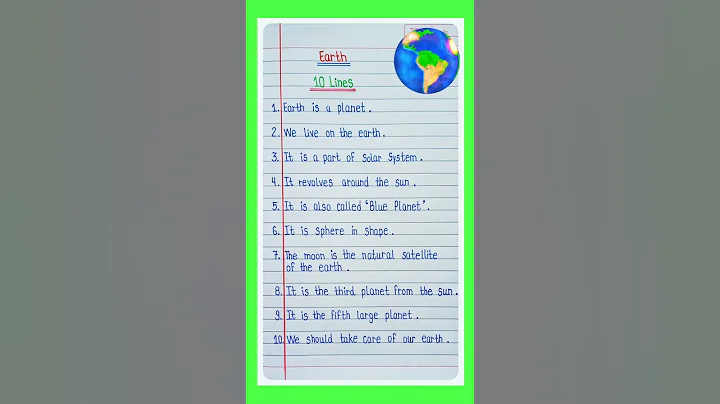 Earth
10 Lines
1. Earth is a planet.
2. We live on the earth.
3. It is a part of Solar System.
4. It revolves around the sun.
5. It is also called "Blue Planet".
6. It is sphere in shape.
7. The moon is the natural satellite
of the earth.
8. It is the third planet from the sun.
9. It is the fifth large planet.
10. We should take care of our earth.